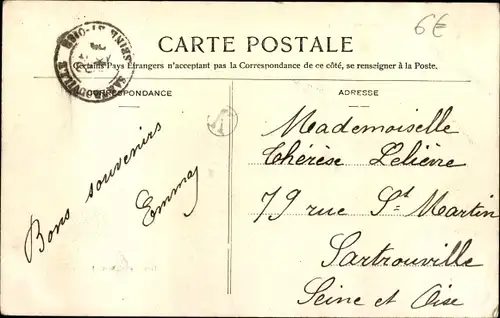 6€
CARTE POSTALE
Certains Pays Étrangers n'acceptant pas la Correspondance de ce côté, se renseigner à la Poste.
SARTROUVILLE
SEINE-ET-OISE
CORRESPONDANCE
ADRESSE
Bons souvenirs
Emma
Mademoiselle
Thérèse Lelièvre
79 rue St Martin
Sartrouville
Seine et Oise